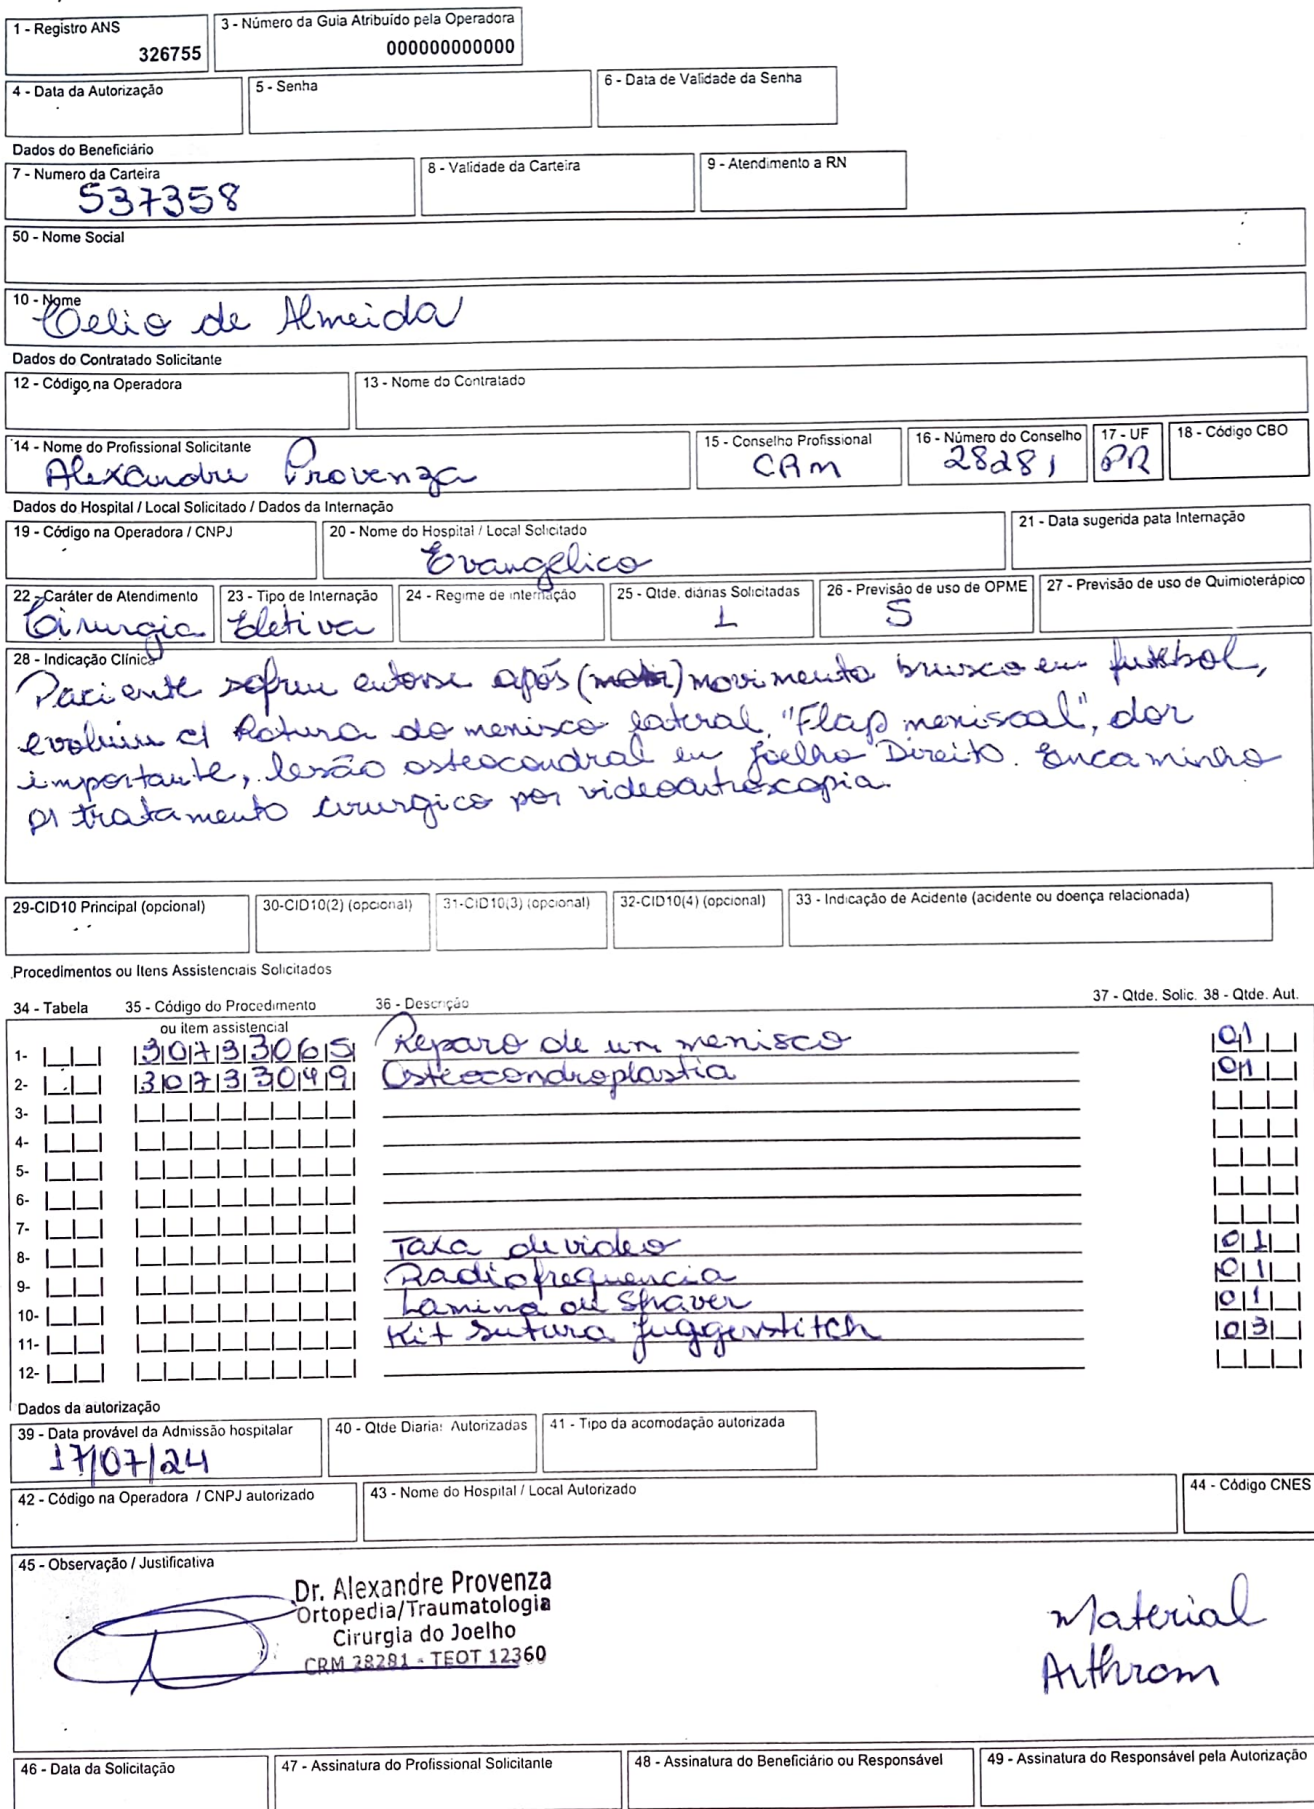 1 - Registro ANS
326755
3 - Número da Guia Atribuído pela Operadora
000000000000
4 - Data da Autorização
5 - Senha
6 - Data de Validade da Senha
Dados do Beneficiário
7 - Numero da Carteira
537358
8 - Validade da Carteira
9 - Atendimento a RN
50 - Nome Social
10 - Nome
Celio de Almeida
Dados do Contratado Solicitante
12 - Código na Operadora
13 - Nome do Contratado
14 - Nome do Profissional Solicitante
Alexandre Provenza
15 - Conselho Profissional
CRM
16 - Número do Conselho
28281
17 - UF
PR
18 - Código CBO
Dados do Hospital / Local Solicitado / Dados da Internação
19 - Código na Operadora / CNPJ
20 - Nome do Hospital / Local Solicitado
Evangélico
21 - Data sugerida pata Internação
22 - Caráter de Atendimento
Cirurgia
23 - Tipo de Internação
Eletiva
24 - Regime de internação
25 - Qtde. diárias Solicitadas
1
26 - Previsão de uso de OPME
S
27 - Previsão de uso de Quimioterápico
28 - Indicação Clínica
Paciente sofreu entorse após movimento brusco em futebol,
evoluiu c/ Rotura do menisco lateral, "Flap meniscal", dor
importante, lesão osteocondral em Joelho Direito. Encaminho
p/ tratamento cirurgico por videoartroscopia.
29-CID10 Principal (opcional)
30-CID10(2) (opcional)
31-CID10(3) (opcional)
32-CID10(4) (opcional)
33 - Indicação de Acidente (acidente ou doença relacionada)
Procedimentos ou Itens Assistenciais Solicitados
34 - Tabela 35 - Código do Procedimento 36 - Descrição 37 - Qtde. Solic. 38 - Qtde. Aut.
ou item assistencial
1- 30733065 Reparo de um menisco 01
2- 30733049 Osteocondroplastia 01
3-
4-
5-
6-
7-
8- Taxa de video 01
9- Radiofrequencia 01
10- Lamina de Shaver 01
11- Kit sutura Juggerstitch 03
12-
Dados da autorização
39 - Data provável da Admissão hospitalar
17/07/24
40 - Qtde Diarias Autorizadas
41 - Tipo da acomodação autorizada
42 - Código na Operadora / CNPJ autorizado
43 - Nome do Hospital / Local Autorizado
44 - Código CNES
45 - Observação / Justificativa
Dr. Alexandre Provenza
Ortopedia/Traumatologia
Cirurgia do Joelho
CRM 28281 - TEOT 12360
Material
Arthrom
46 - Data da Solicitação
47 - Assinatura do Profissional Solicitante
48 - Assinatura do Beneficiário ou Responsável
49 - Assinatura do Responsável pela Autorização